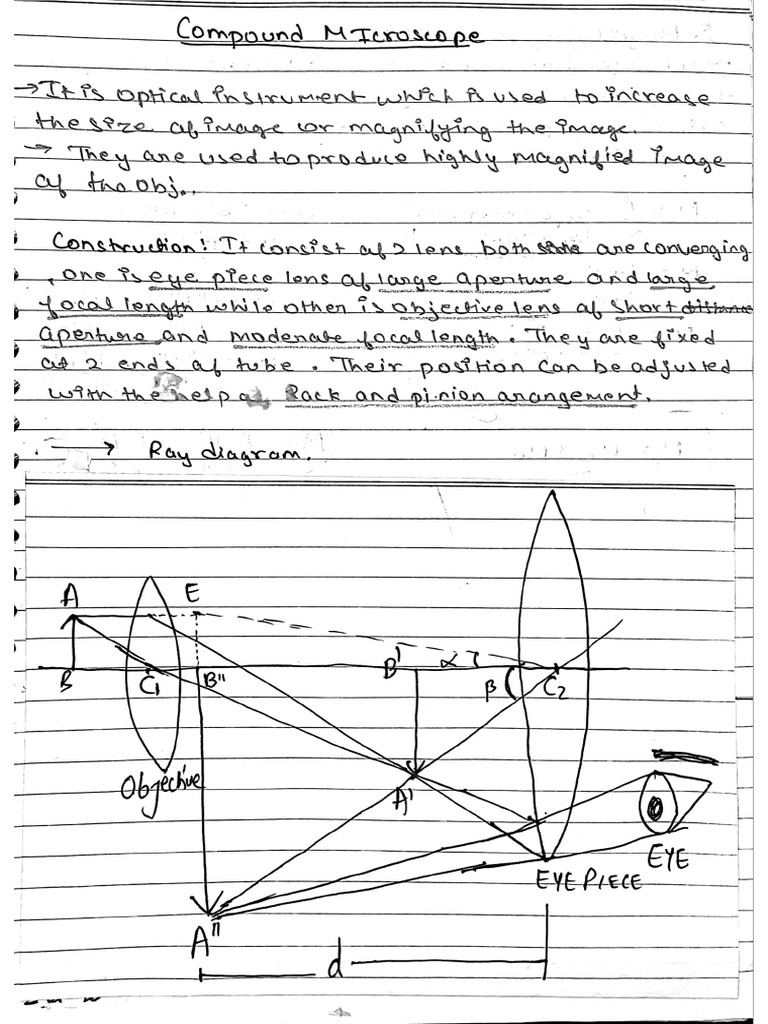 Compound Microscope
→ It is optical instrument which is used to increase
the size of image or magnifying the image.
→ They are used to produce highly magnified image
of the obj..
Construction: It consist of 2 lens both are converging
, one is eye piece lens of large aperture and large
focal length while other is objective lens of short distance
aperture and moderate focal length. They are fixed
at 2 ends of tube. Their position can be adjusted
with the help of Rack and pinion arangement.
→ Ray diagram.
A E
B' α
B C1 B" β C2
Objective A'
EYE
EYE PIECE
A"
d